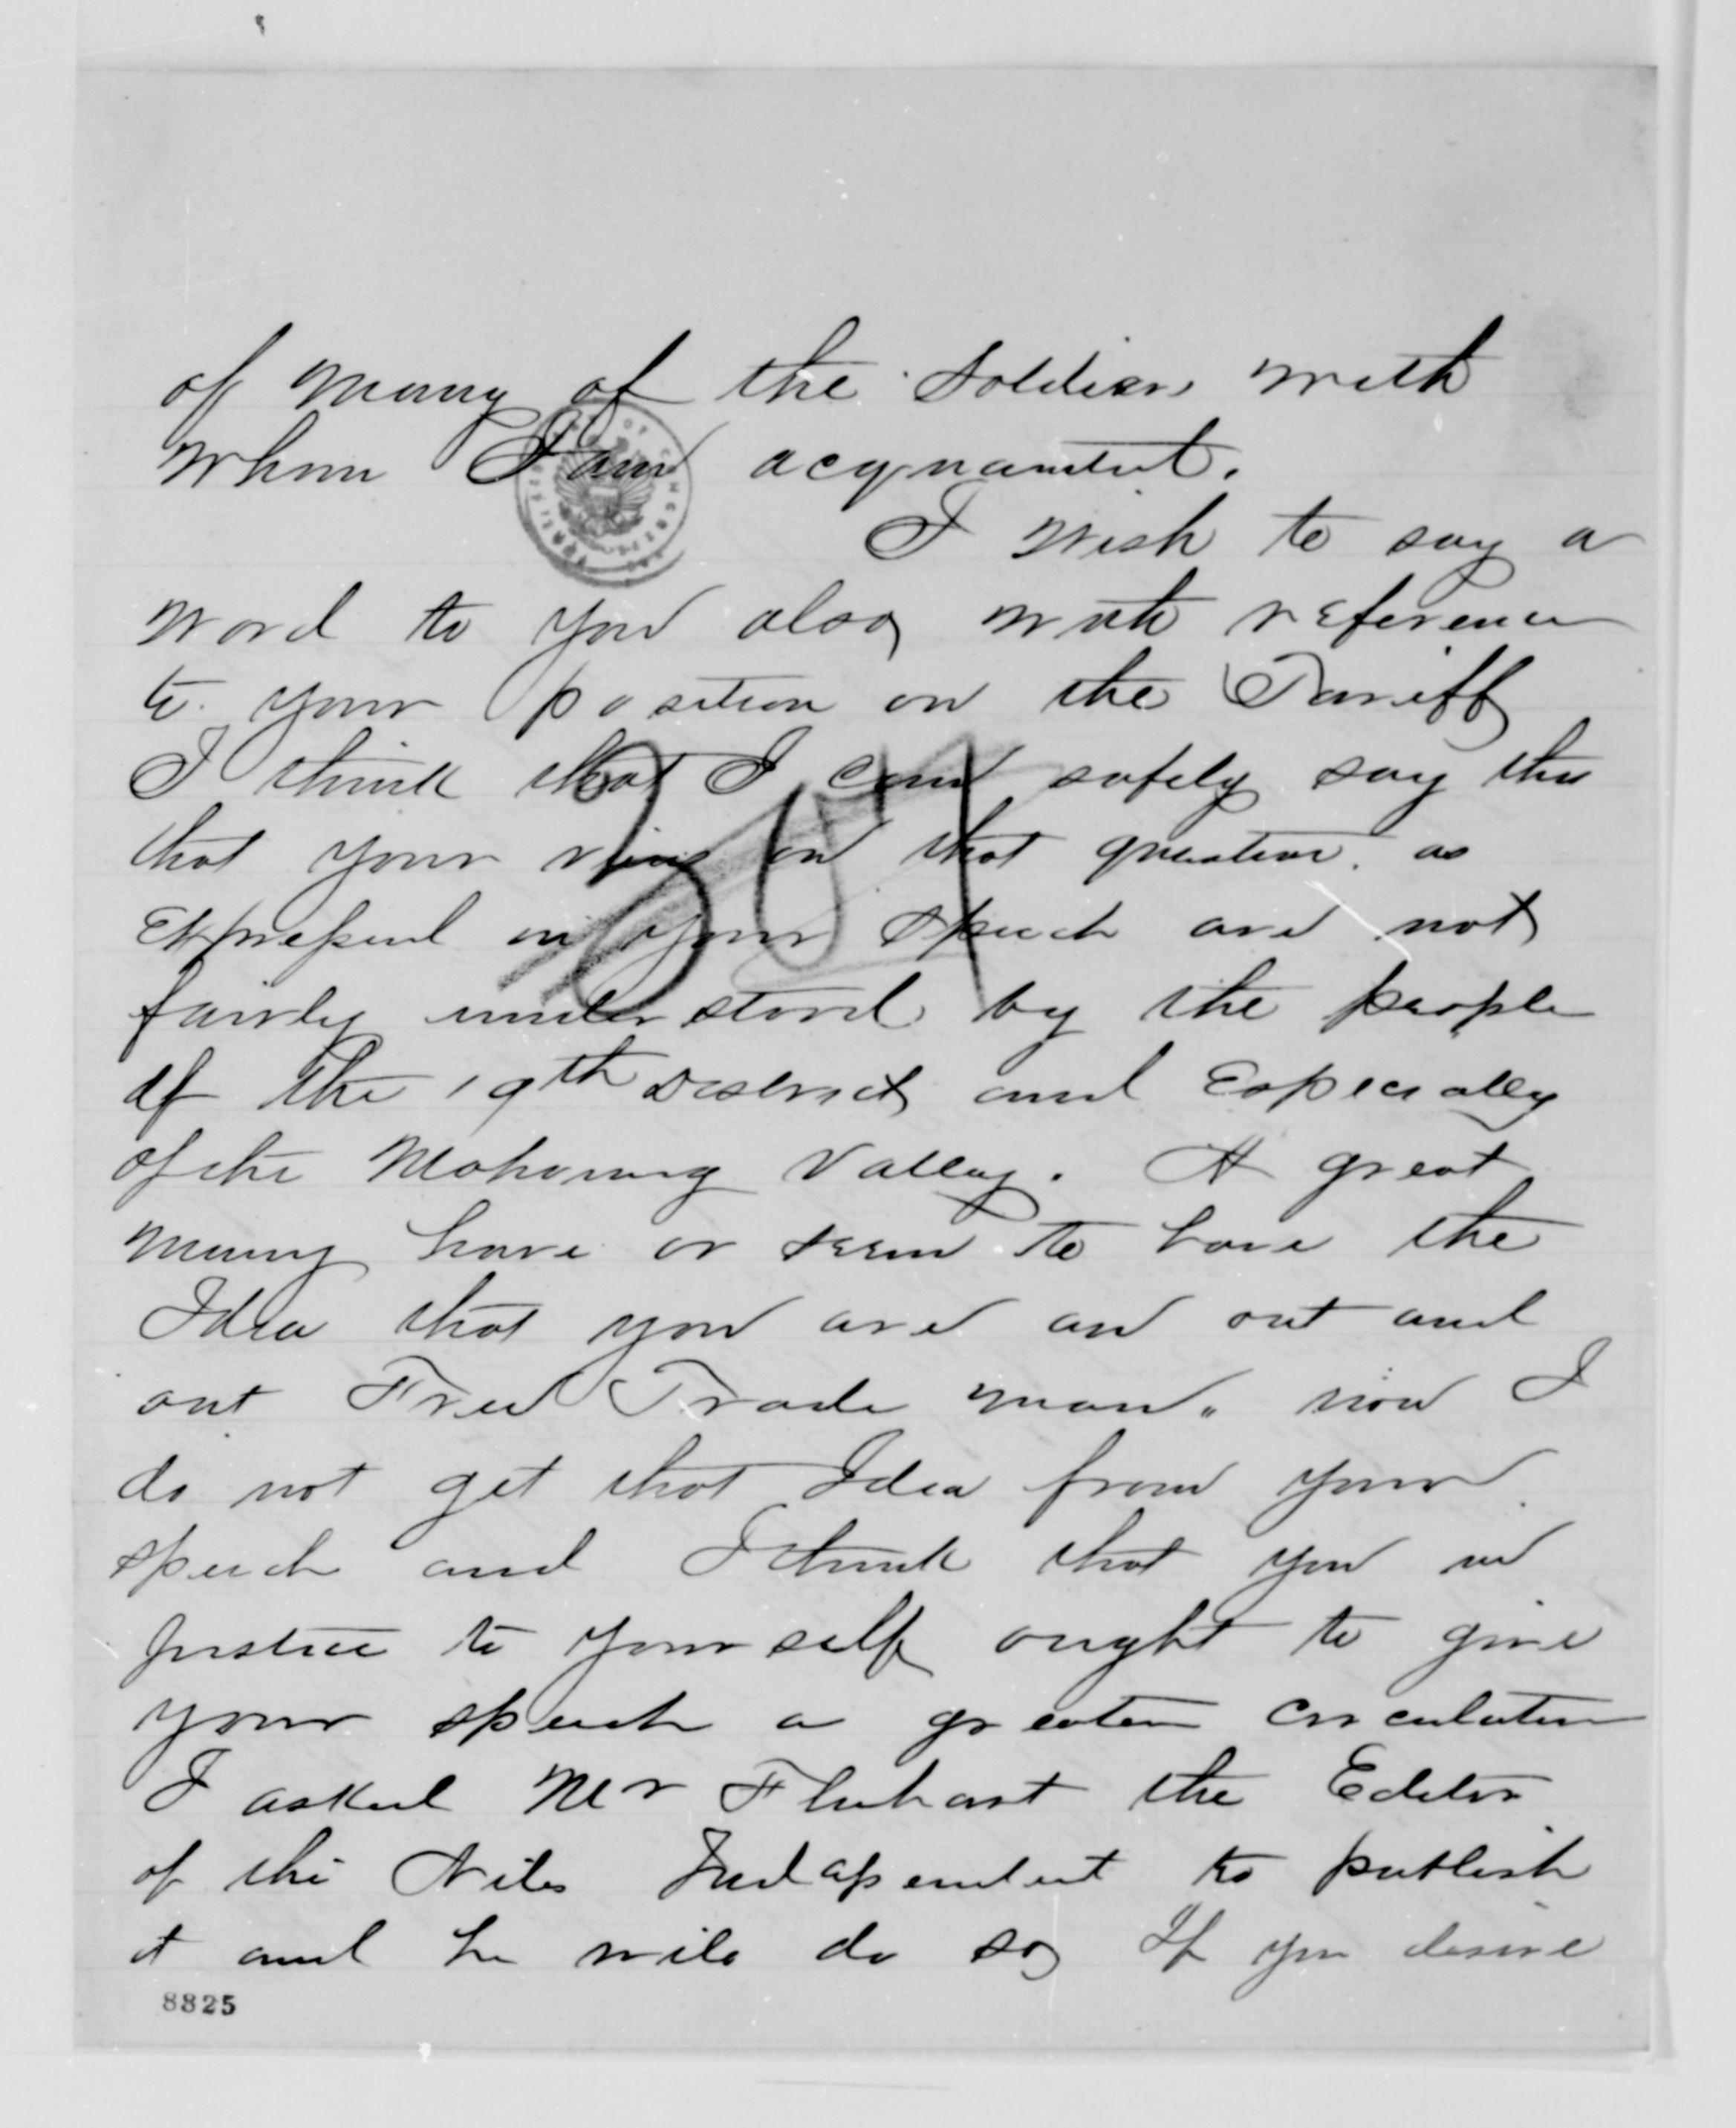 of many of the Soldiers with
whom I am acquainted.
I wish to say a
word to you also, with reference
to your position on the Tariff
I think that I can safely say this
that your views on that question as
Expressed in your speech are not
fairly understood by the people
of the 19th District and Especially
of the Mahoning Valley. A great
many have or seem to have the
Idea that you are an out and
out Free Trade man. now I
do not get that Idea from your
speech and I think that you in
justice to your self ought to give
your speech a greater circulation
I asked Mr Fluhart the Editor
of the Niles Independent to publish
it and he will do so, If you desire
307
8825